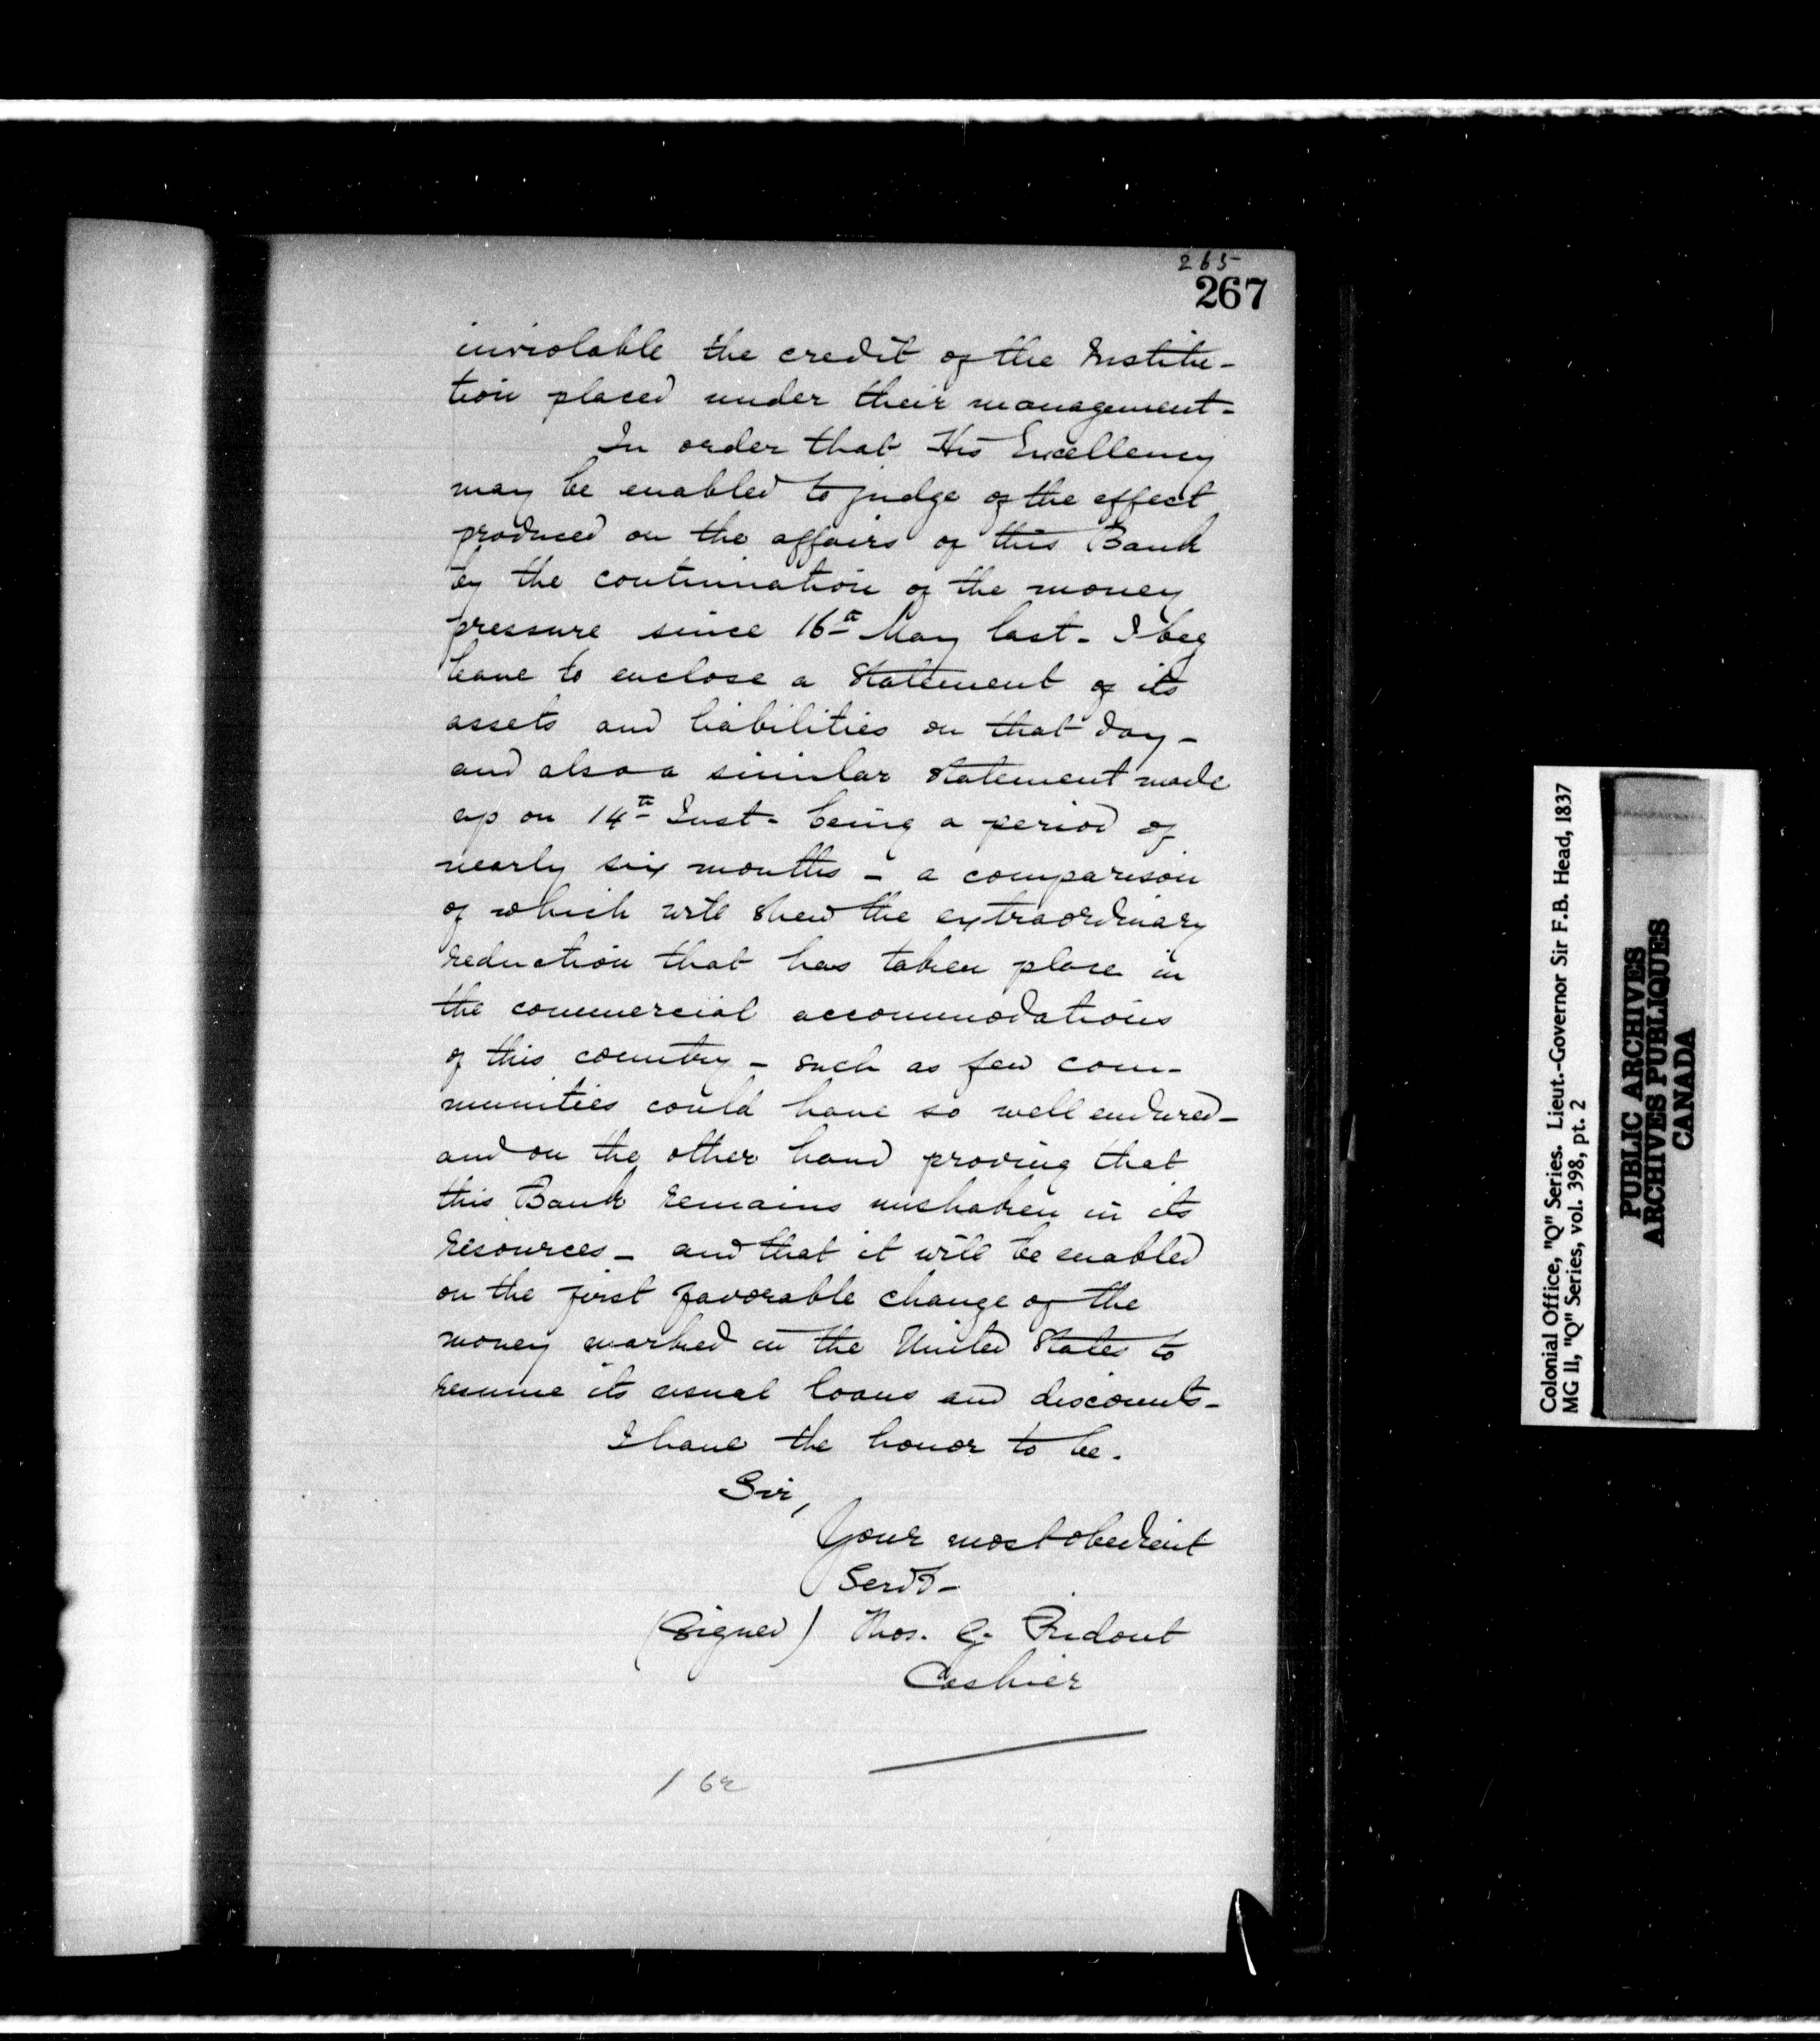 265
267
inviolable the credit of the Institu-
tion placed under their management-
In order that His Excellency
may be enabled to judge of the effect
produced on the affairs of this Bank
by the continuation of the money
pressure since 16th May last- I beg
leave to enclose a Statement of its
assets and liabilities on that day-
and also a similar Statement made
up on 14th Inst- being a period of
nearly six months - a comparison
of which will shew the extraordinary
reduction that has taken place in
the commercial accommodations
of this country - such as few com-
munities could have so well endured-
and on the other hand proving that
this Bank remains unshaken in its
resources- and that it will be enabled
on the first favorable change of the
money marked in the United States to
resume its usual loans and discounts-
I have the honor to be.
Sir,
Your most obedient
Servt-
(Signed) Thos. G. Ridout
Cashier
Colonial Office, "Q" Series. Lieut.-Governor Sir F.B. Head, 1837
MG 11, "Q" Series, vol. 398, pt. 2
PUBLIC ARCHIVES
ARCHIVES PUBLIQUES
CANADA